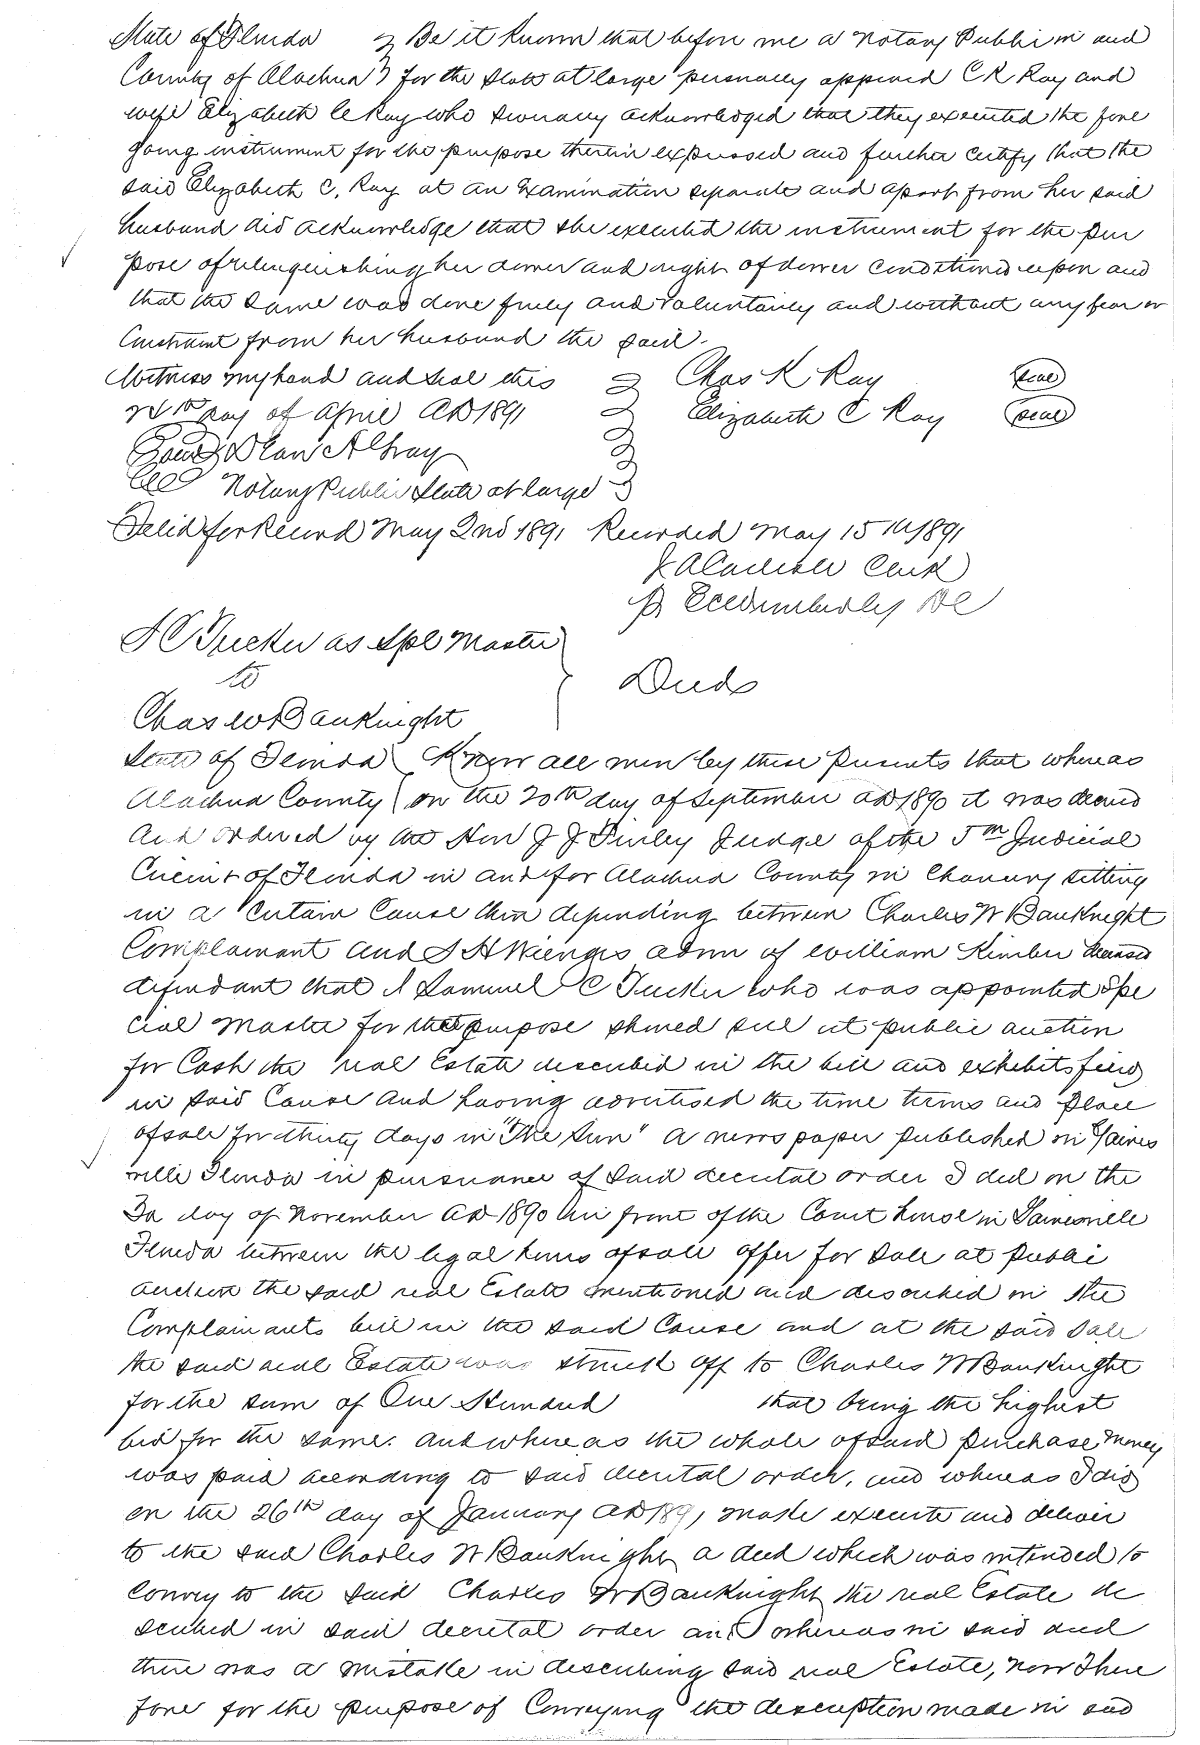 State of Florida } Be it known that before me a Notary Public in and
County of Alachua } for the State at large personally appeared C K Ray and
wife Elizabeth C Ray who severally acknowledged that they executed the fore
going instrument for the purpose therein expressed and further certify that the
said Elizabeth C. Ray at an Examination separate and apart from her said
husband did acknowledge that she executed the instrument for the pur
pose of relinquishing her dower and right of dower conditioned upon and
that the same was done freely and voluntarily and without any fear or
Constraint from her husband the said.
Witness my hand and seal this } Chas K Ray (seal)
day of April AD 1891 } Elizabeth C Ray (seal)
Notary Public State at large }
Filed for Record May 2nd 1891 Recorded May 15th 1891
Clerk
DC
S C Tucker as Spl Master
to
Deed
Chas W Bauknight
State of Florida } Know all men by these Presents that whereas
Alachua County } on the 20th day of September AD 1890 it was decreed
and ordered by the Hon J J Finley Judge of the 5th Judicial
Circuit of Florida in and for Alachua County in Chancery sitting
in a certain Cause then depending between Charles W Bauknight
Complainant and S H Wienges admr of William Kimber deceased
defendant that I Samuel C Tucker who was appointed Spe
cial Master for that purpose should sell at public auction
for Cash the real Estate described in the bill and exhibits filed
in said Cause and having advertised the time terms and place
of sale for thirty days in "The Sun" a newspaper published in Gaines
ville Florida in pursuance of said decretal order I did on the
3d day of November AD 1890 in front of the Court house in Gainesville
Florida between the legal hours of sale offer for sale at public
auction the said real Estate mentioned and described in the
Complainants bill in the said Cause and at the said sale
the said real Estate was struck off to Charles W Bauknight
for the sum of One Hundred that being the highest
bid for the same. And whereas the whole of said purchase money
was paid according to said decretal order, and whereas I did
on the 26th day of January AD 1891 make execute and deliver
to the said Charles W Bauknight a deed which was intended to
Convey to the said Charles W Bauknight the real Estate de
scribed in said decretal order and whereas in said deed
there was a mistake in describing said real Estate, now There
fore for the purpose of Conveying the description made in said